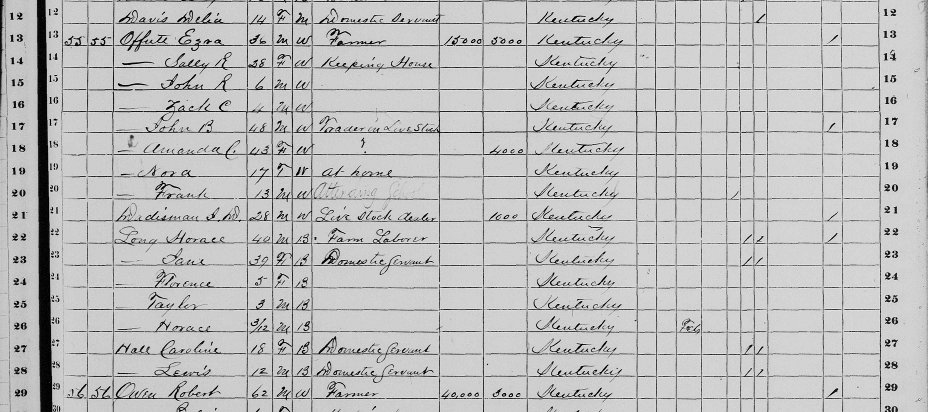 12 12 Davis Delia 14 F M Domestic Servant Kentucky 1 12
13 13 55 55 Offutt Ezra 36 M W Farmer 15000 5000 Kentucky 1 13
14 14 — Sally R 28 F W Keeping House Kentucky 14
15 15 — John R 6 M W Kentucky 15
16 16 — Zack C 4 M W Kentucky 16
17 17 — John B 48 M W Trader in Live Stock Kentucky 1 17
18 18 — Amanda C. 43 F W ? 4000 Kentucky 18
19 19 — Nora 17 F W At home Kentucky 19
20 20 — Frank 13 M W Kentucky 1 20
21 21 Wadisman I. D. 28 M W Live Stock dealer 1000 Kentucky 1 21
22 22 Long Horace 40 M B Farm Laborer Kentucky 1 1 1 22
23 23 — Jane 39 F B Domestic Servant Kentucky 1 1 23
24 24 — Florence 5 F B Kentucky 24
25 25 Taylor 3 M B Kentucky 25
26 26 — Horace 3/12 M B Kentucky Feb 26
27 27 Hall Caroline 18 F B Domestic Servant Kentucky 1 1 27
28 28 — Lewis 12 M B Domestic Servant Kentucky 1 1 28
29 29 56 56 Owen Robert 62 M W Farmer 40,000 3000 Kentucky 1 29
30 30